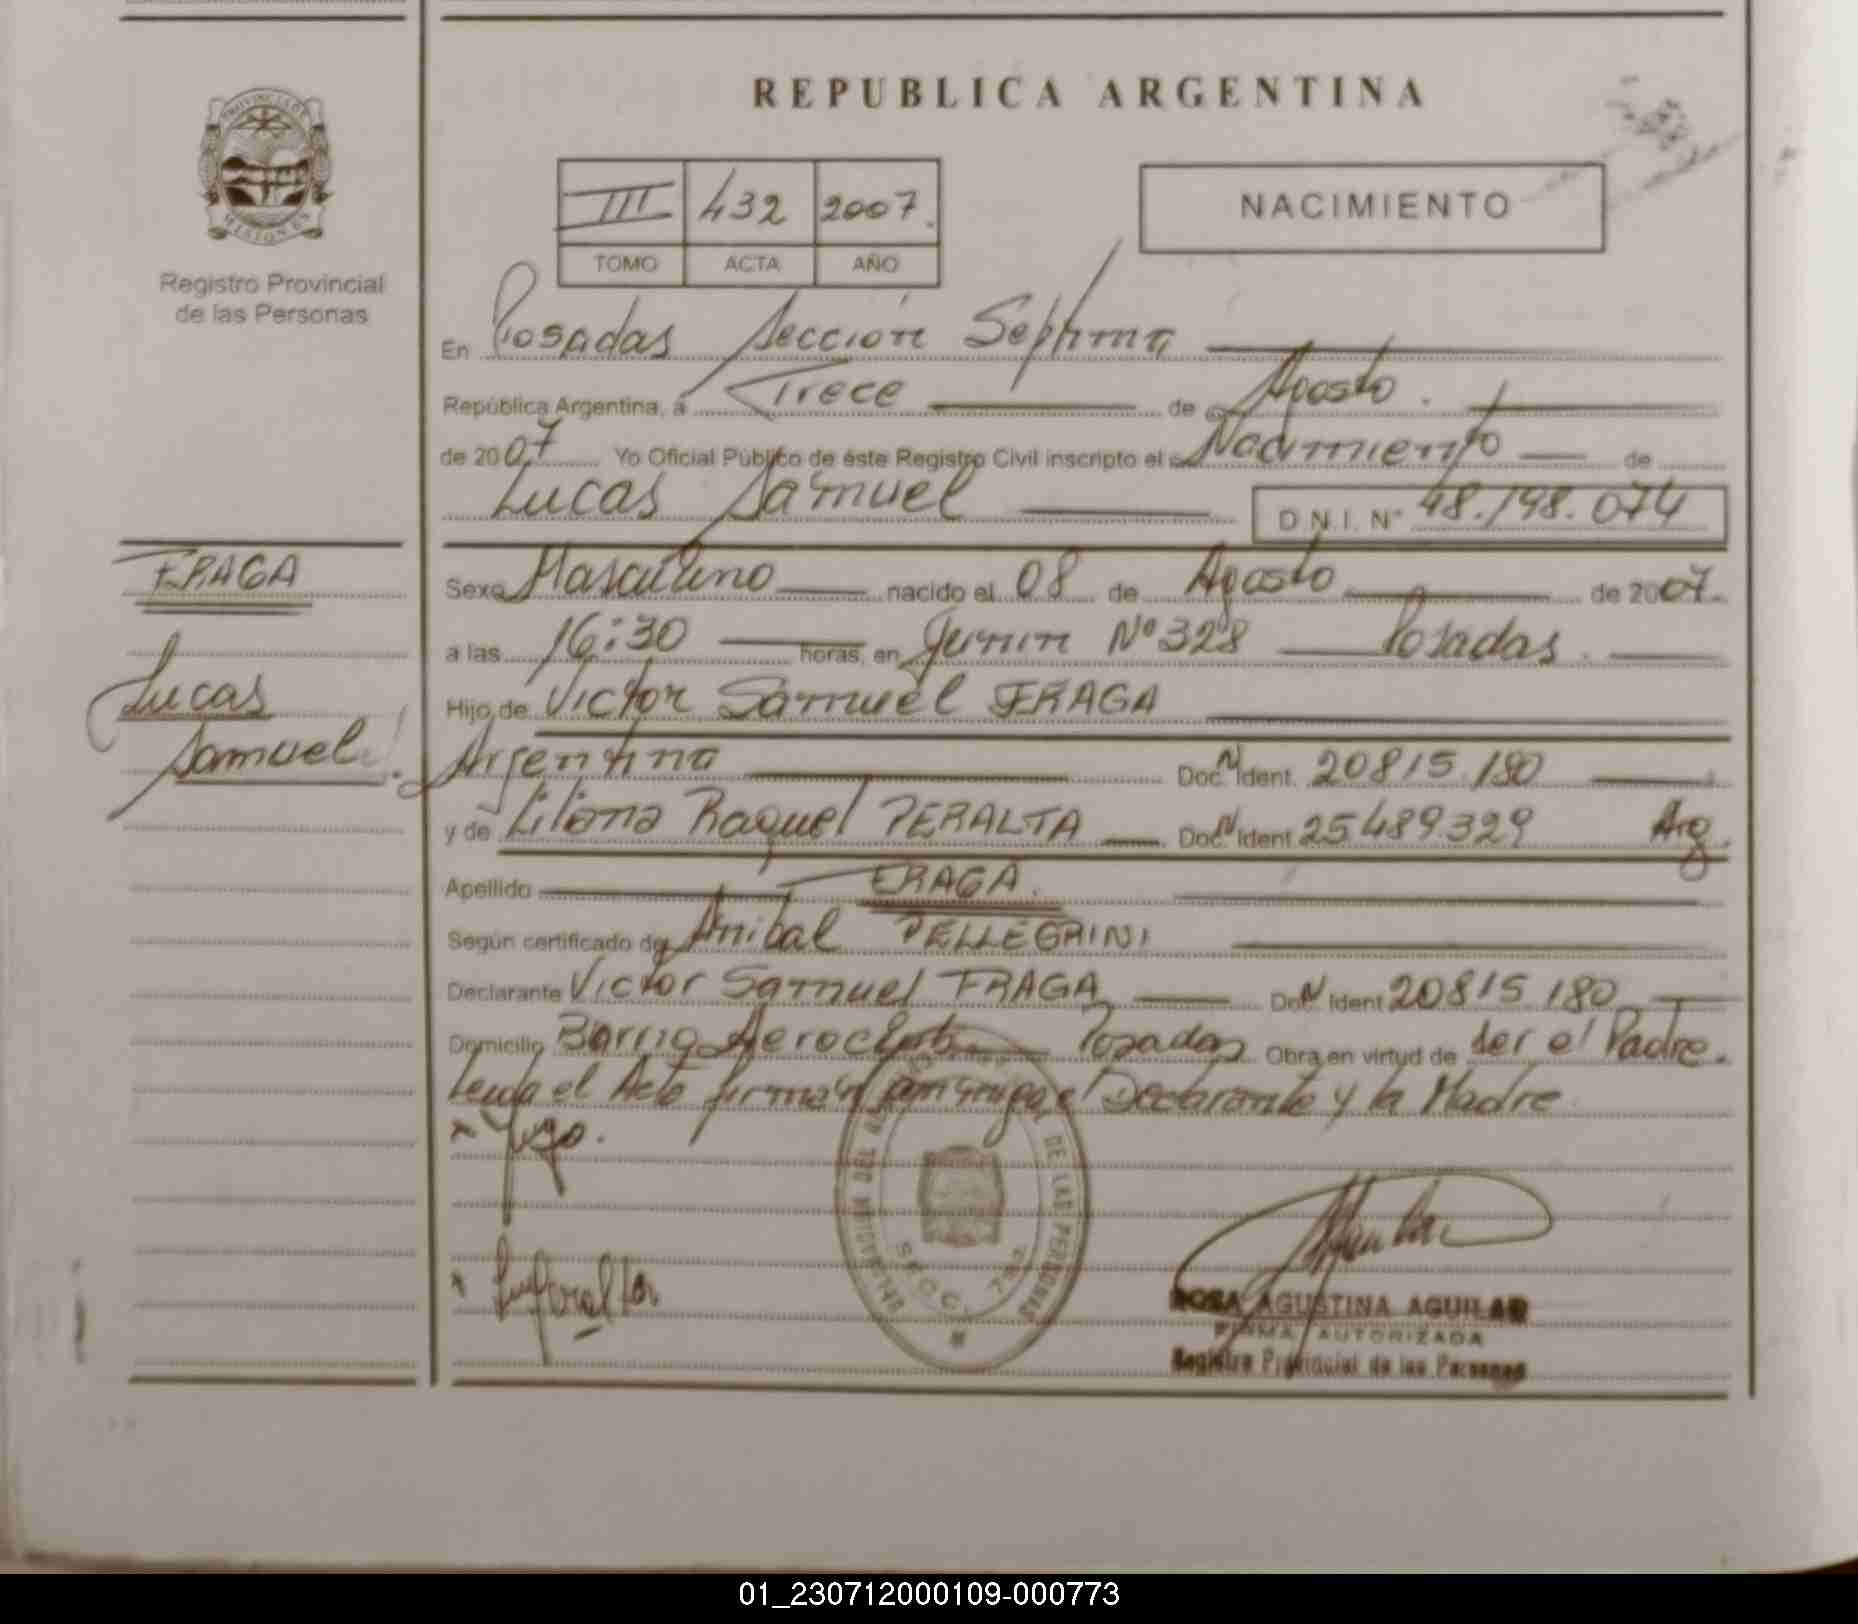 REPUBLICA ARGENTINA
PROVINCIA DE
MISIONES
Registro Provincial
de las Personas
III 432 2007.
TOMO ACTA AÑO
NACIMIENTO
En Posadas Sección Séptima
República Argentina, a Trece de Agosto.
de 2007 Yo Oficial Público de éste Registro Civil inscripto el Nacimiento de
Lucas Samuel D.N.I. N° 48.198.074
FRAGA
Lucas
Samuel.
Sexo Masculino nacido el 08 de Agosto de 2007.
a las 16:30 horas, en Junin N° 328 Posadas.
Hijo de Victor Samuel FRAGA
Argentina Doc. N Ident. 20815.180
y de Liliana Raquel PERALTA Doc. N Ident. 25489329 Arg.
Apellido FRAGA.
Según certificado de Anibal PELLEGRINI
Declarante Victor Samuel FRAGA Doc. N Ident. 20815.180
Domicilio Barrio Aeroclub Posadas Obra en virtud de ser el Padre.
Leida el Acta firman conmigo el Declarante y la Madre
DE LAS PERSONAS
SECC. 7ma
ROSA AGUSTINA AGUILAR
FIRMA AUTORIZADA
Registro Provincial de las Personas
01_230712000109-000773